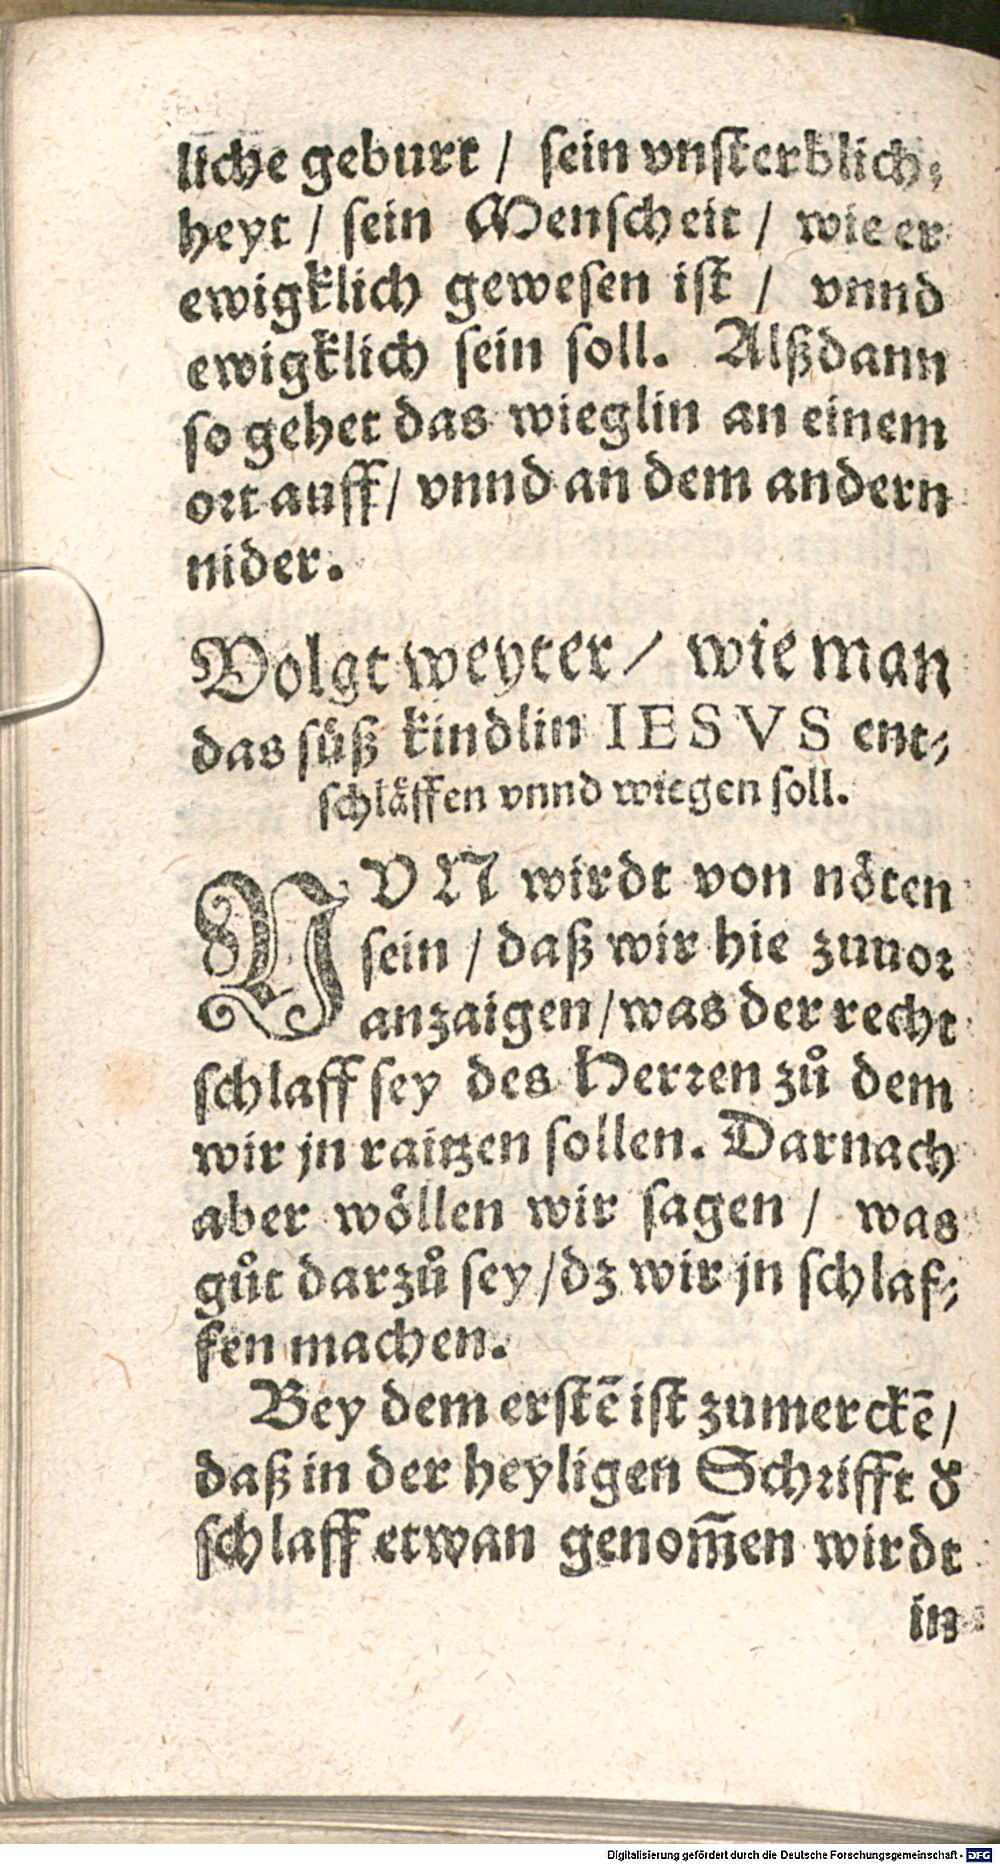 liche geburt / sein vnsterblich⸗
heyt / sein Menscheit / wie er
ewigklich gewesen ist / vnnd
ewigklich sein soll. Alßdann
so gehet das wieglin an einem
ort auff / vnnd an dem andern
nider.
Volgt weyter / wie man
das süß kindlin IESVS ent⸗
schläffen vnnd wiegen soll.
NVN wirdt von nöten
sein / daß wir hie zuuor
anzaigen / was der recht
schlaff sey des Herren zů dem
wir jn raitzen sollen. Darnach
aber wöllen wir sagen / was
gůt darzů sey / dz wir jn schlaf⸗
fen machen.
Bey dem erstē ist zumerckē /
daß in der heyligen Schrifft d̕
schlaff etwan genom̃en wirdt
in
Digitalisierung gefördert durch die Deutsche Forschungsgemeinschaft - DFG